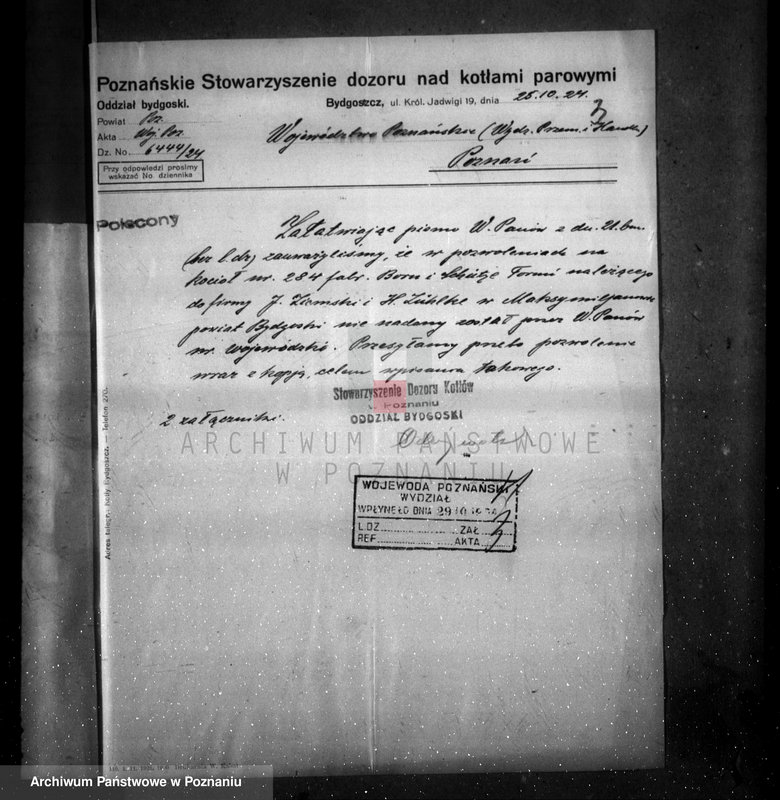 Poznańskie Stowarzyszenie dozoru nad kotłami parowymi
Oddział bydgoski. Bydgoszcz, ul. Król. Jadwigi 19, dnia 25.10.24.
Powiat Poz.
Akta Woj. Poz.
Dz. No. 6444/24
Województwo Poznańskie (Wydz. Przem. i Handlu)
Poznań
Przy odpowiedzi prosimy
wskazać No. dziennika
Polecony
Załatwiając pismo W. Panów z dn. 21. bm.
(bez l. dz) zauważyliśmy, że w pozwoleniach na
kocioł nr. 284 fabr. Born i Schütze Toruń należącego
do firmy J. Ziemski i H. Zühlke w
powiat Bydgoski nie nadany został przez W. Panów
nr. wojewódzki. Przesyłamy przeto pozwolenie
wraz z kopją, celem wpisania takowego.
Stowarzyszenie Dozoru Kotłów
w Poznaniu
ODDZIAŁ BYDGOSKI
2 załączniki.
ARCHIWUM PAŃSTWOWE
W POZNANIU
WOJEWODA POZNAŃSKI
WYDZIAŁ
WPŁYNĘŁO DNIA 29.10.1924
L.DZ. ZAŁ.
REF. AKTA
Adres telegr.: Kotły Bydgoszcz. — Telefon 270.
Archiwum Państwowe w Poznaniu